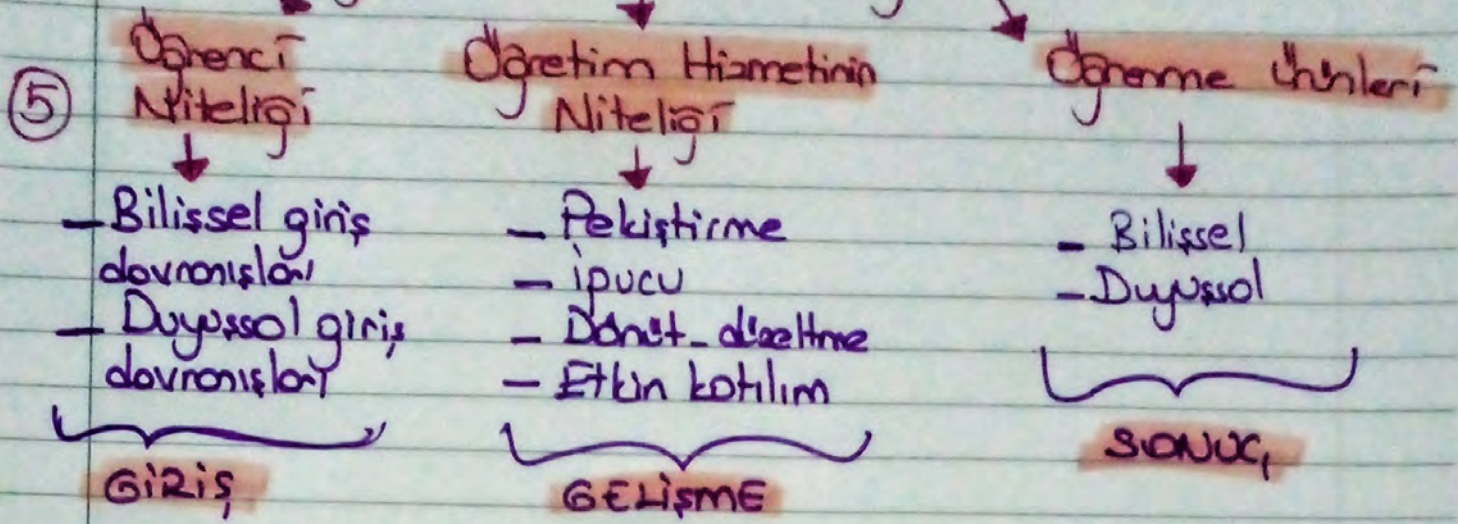 5
Öğrenci
Niteliği
- Bilişsel giriş
davranışları
- Duyuşsal giriş
davranışları
GİRİŞ
Öğretim Hizmetinin
Niteliği
- Pekiştirme
- İpucu
- Dönüt-düzeltme
- Etkin katılım
GELİŞME
Öğrenme Ürünleri
- Bilişsel
- Duyuşsal
SONUÇ